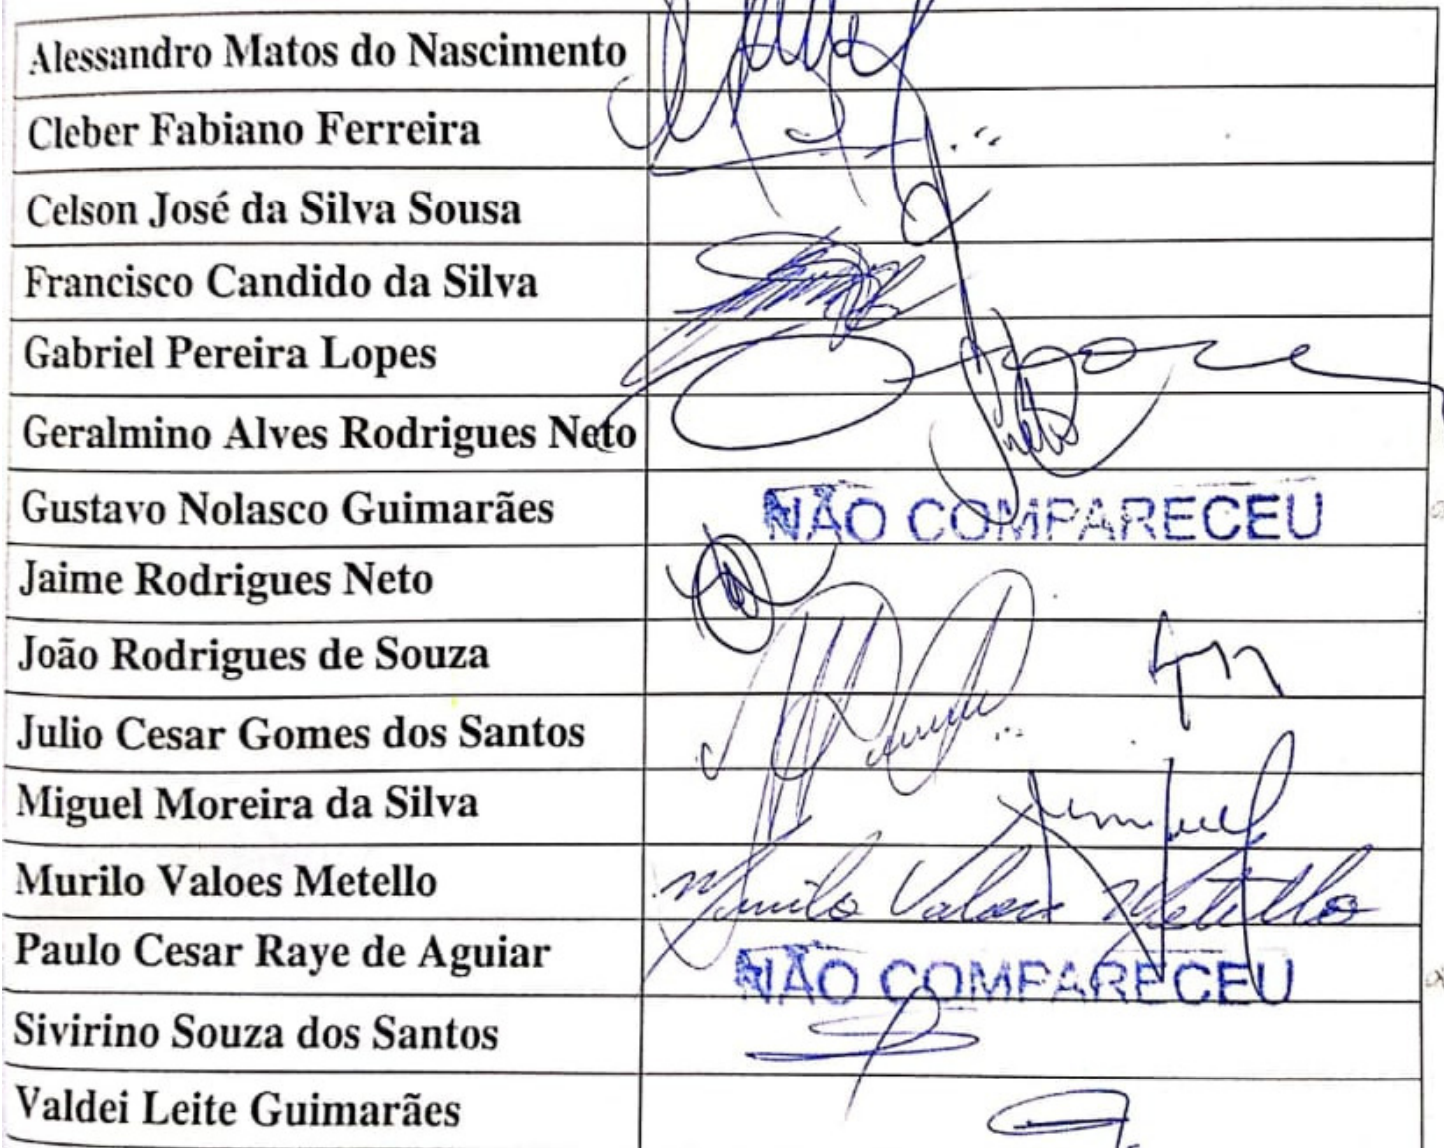 Alessandro Matos do Nascimento
Cleber Fabiano Ferreira
Celson José da Silva Sousa
Francisco Candido da Silva
Gabriel Pereira Lopes
Geralmino Alves Rodrigues Neto
Gustavo Nolasco Guimarães NÃO COMPARECEU
Jaime Rodrigues Neto
João Rodrigues de Souza
Julio Cesar Gomes dos Santos
Miguel Moreira da Silva
Murilo Valoes Metello Murilo Valoes Metello
Paulo Cesar Raye de Aguiar NÃO COMPARECEU
Sivirino Souza dos Santos
Valdei Leite Guimarães